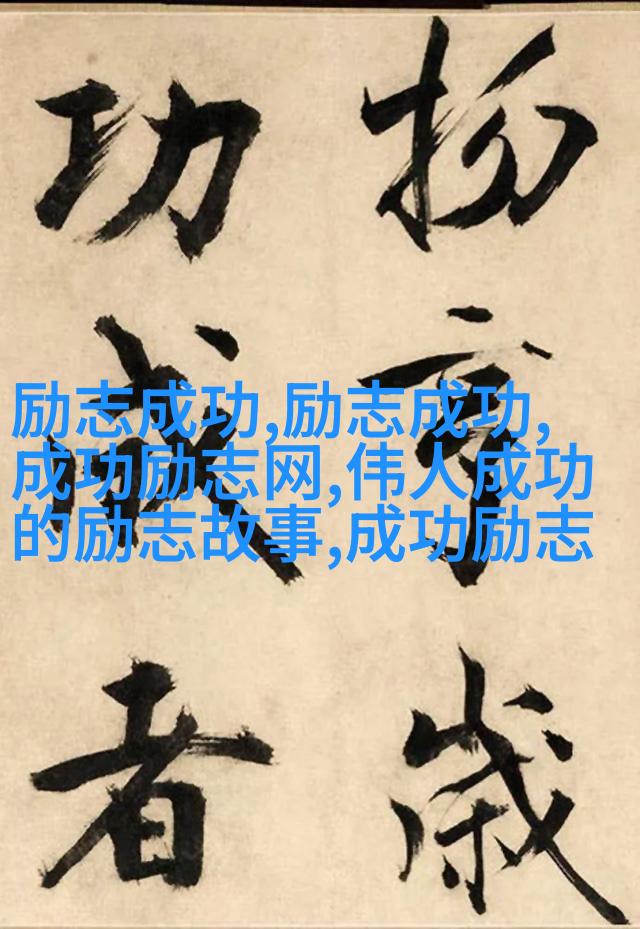 歲
功成者
励志成功,励志成功,
成功励志网,伟人成功
的励志故事,成功励志